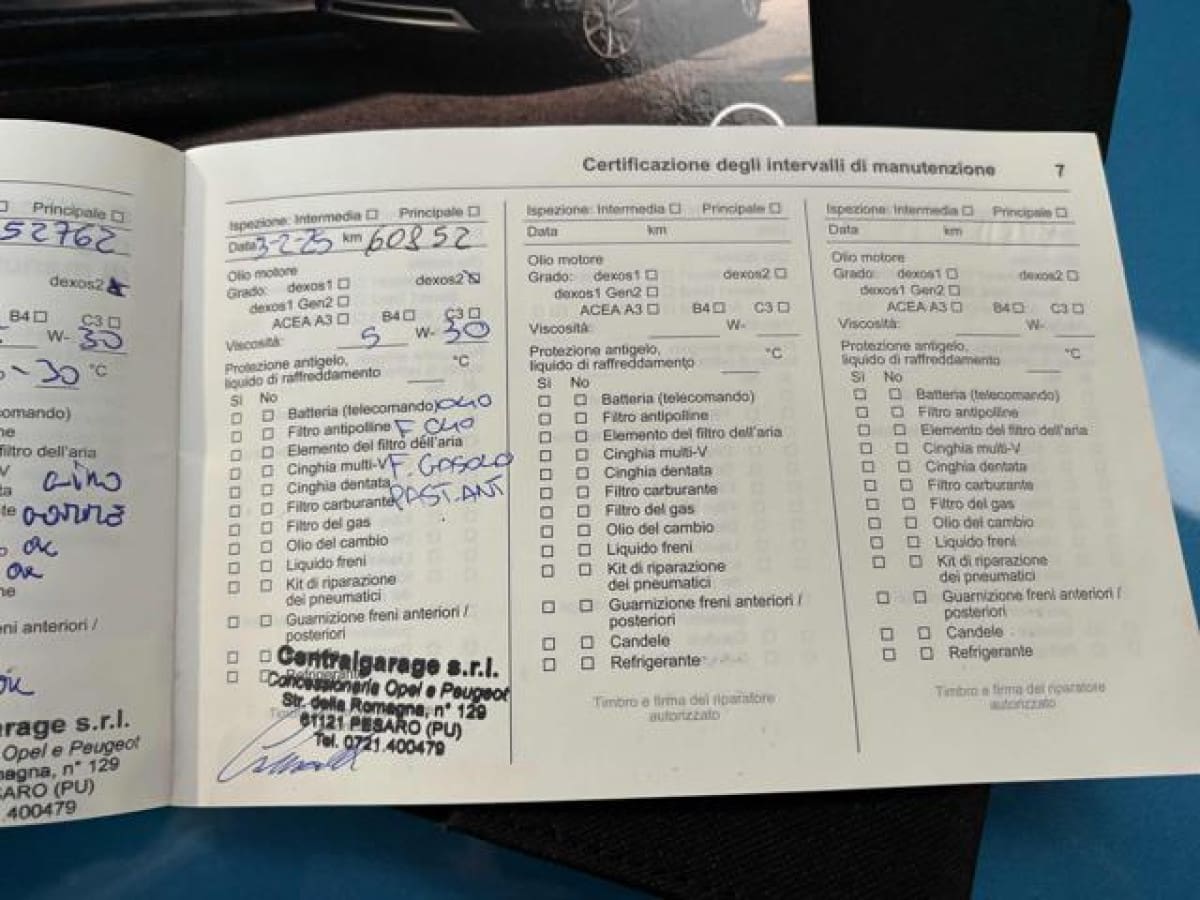 Principale
52762
dexos2
B4 C3
W- 30
-30 °C
comando)
filtro dell'aria
ok
ok
eni anteriori /
ok
arage s.r.l.
Opel e Peugeot
magna, n° 129
SARO (PU)
.400479
Certificazione degli intervalli di manutenzione 7
Ispezione: Intermedia Principale
Data 3-2-25 km 60852
Olio motore
Grado: dexos1 dexos2
dexos1 Gen2
ACEA A3 B4 C3
Viscosità: 5 W- 30
Protezione antigelo,
liquido di raffreddamento °C
Sì No
Batteria (telecomando) OLIO
Filtro antipolline F. OLIO
Elemento del filtro dell'aria
Cinghia multi-V F. GASOLO
Cinghia dentata
Filtro carburante PAST. ANT
Filtro del gas
Olio del cambio
Liquido freni
Kit di riparazione
dei pneumatici
Guarnizione freni anteriori /
posteriori
Centralgarage s.r.l.
Concessionaria Opel e Peugeot
Str. della Romagna, n° 129
61121 PESARO (PU)
Tel. 0721.400479
Ispezione: Intermedia Principale
Data km
Olio motore
Grado: dexos1 dexos2
dexos1 Gen2
ACEA A3 B4 C3
Viscosità: W-
Protezione antigelo,
liquido di raffreddamento °C
Sì No
Batteria (telecomando)
Filtro antipolline
Elemento del filtro dell'aria
Cinghia multi-V
Cinghia dentata
Filtro carburante
Filtro del gas
Olio del cambio
Liquido freni
Kit di riparazione
dei pneumatici
Guarnizione freni anteriori /
posteriori
Candele
Refrigerante
Timbro e firma del riparatore
autorizzato
Ispezione: Intermedia Principale
Data km
Olio motore
Grado: dexos1 dexos2
dexos1 Gen2
ACEA A3 B4 C3
Viscosità: W-
Protezione antigelo,
liquido di raffreddamento °C
Sì No
Batteria (telecomando)
Filtro antipolline
Elemento del filtro dell'aria
Cinghia multi-V
Cinghia dentata
Filtro carburante
Filtro del gas
Olio del cambio
Liquido freni
Kit di riparazione
dei pneumatici
Guarnizione freni anteriori /
posteriori
Candele
Refrigerante
Timbro e firma del riparatore
autorizzato